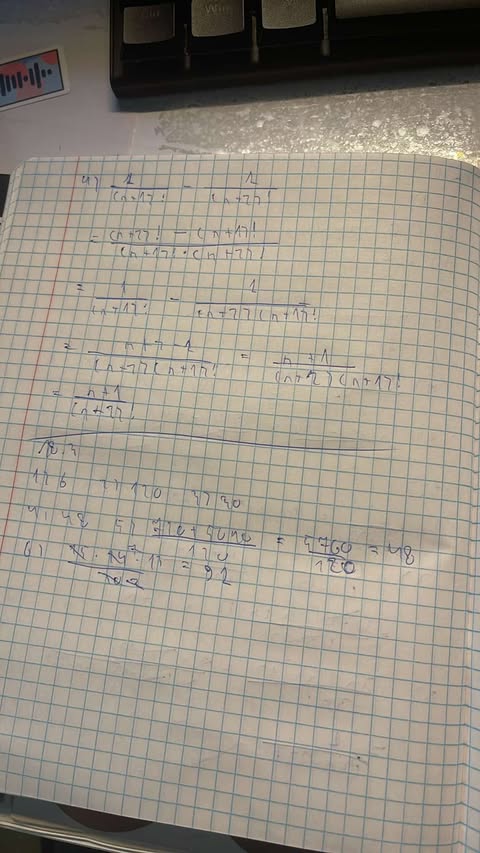 4) 1/(n+1)! - 1/(n+2)!
= ((n+2)! - (n+1)!)/((n+1)!·(n+2)!)
= 1/(n+1)! - 1/((n+2)(n+1)!)
= (n+2-1)/((n+2)(n+1)!) = (n+1)/((n+2)(n+1)!)
= (n+1)/(n+2)!
1) 6 2) 120 3) 30
4) 48 5) (720+5040)/120 = 5760/120 = 48
= 91